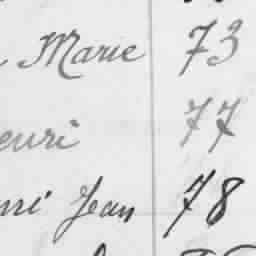 Marie 73
enri 77
nri Jean 78